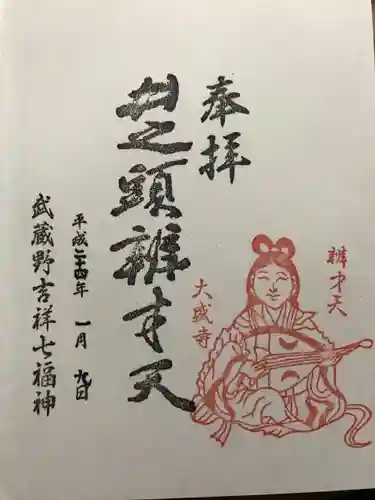 奉拝
井之頭辨才天
平成二十四年 一月 九日
武蔵野吉祥七福神
辨才天
大盛寺